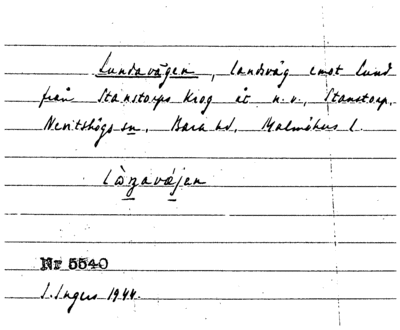 Lundavägen, landsväg emot Lund
från Stanstorps krog åt n.v., Stanstorp,
Nevitshögs sn, Bara hd, Malmöhus l.
Nr 5540
I. Ingers 1944.